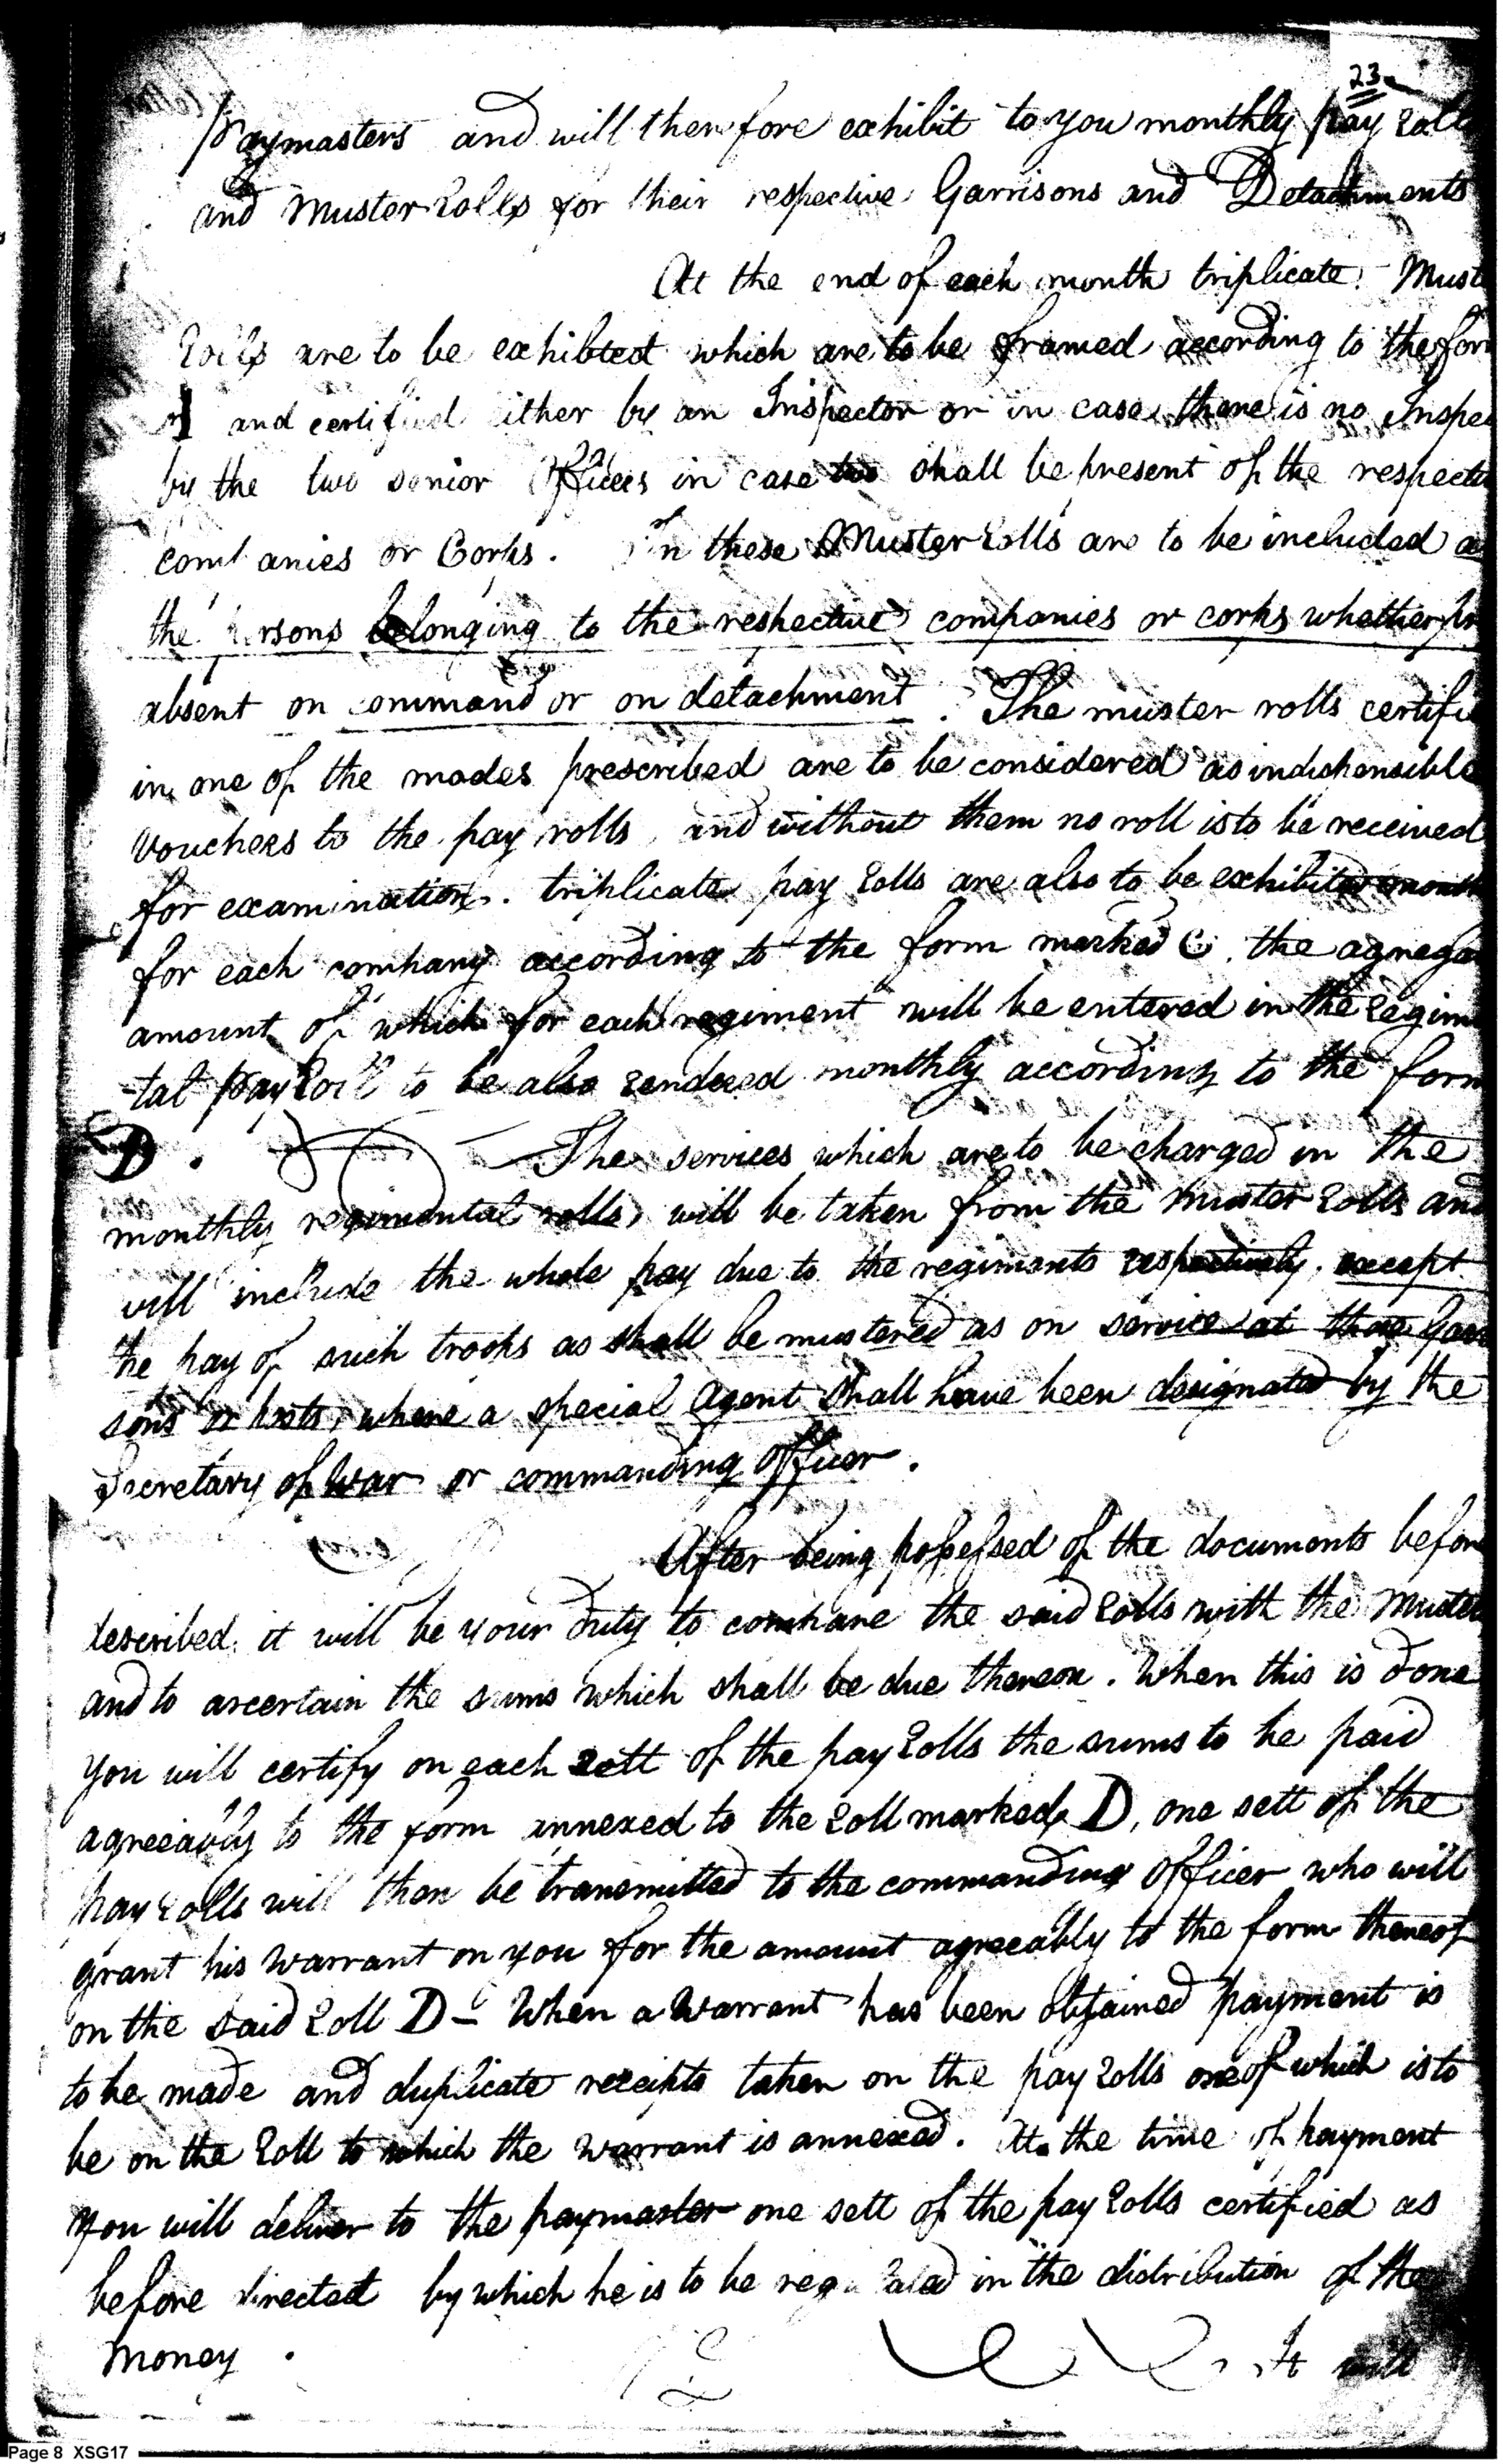 23
Paymasters and will therefore exhibit to you monthly pay Roll
and Muster Rolls for their respective Garrisons and Detachments
At the end of each month triplicate Must
Rolls are to be exhibited which are to be framed according to the for
and certified either by an Inspector or in case there is no Inspe
by the two senior Officers in case two shall be present of the respecti
companies or Corps. In these Muster Rolls are to be included a
the persons belonging to the respective companies or corps whether pr
absent on command or on detachment. The muster rolls certifi
in one of the modes prescribed are to be considered as indispensible
vouchers to the pay rolls, and without them no roll is to be received
for examination. triplicate pay Rolls are also to be exhibited month
for each company according to the form marked C. the agrega
amount of which for each regiment will be entered in the Regim
-tal pay Roll to be also rendered monthly according to the form
D. The services which are to be charged in the
monthly regimental rolls, will be taken from the muster Rolls and
will include the whole pay due to the regiments respectively, except
the pay of such troops as shall be mustered as on service at those Garr
sons or posts, where a special Agent shall have been designated by the
Secretary of War or commanding Officer.
After being possessed of the documents before
described, it will be your duty to compare the said Rolls with the Muster
and to ascertain the sums which shall be due thereon. When this is done
you will certify on each sett of the pay Rolls the sums to be paid
agreeably to the form annexed to the Roll marked D, one sett of the
pay Rolls will then be transmitted to the commanding Officer who will
grant his warrant on you for the amount agreeably to the form thereof
on the said Roll D - When a Warrant has been obtained payment is
to be made and duplicate receipts taken on the pay Rolls one of which is to
be on the Roll to which the warrant is annexed. At the time of payment
you will deliver to the paymaster one sett of the pay Rolls certified as
before directed by which he is to be regulated in the distribution of the
money.
It will
Page 8 XSG17